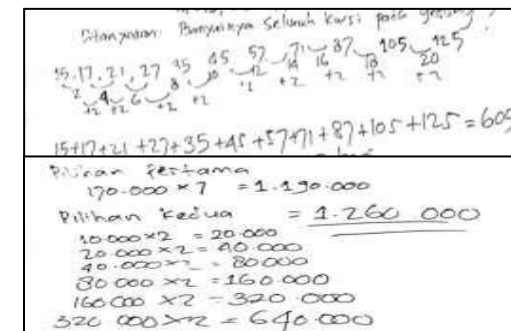 Ditanyakan: Banyaknya seluruh kursi pada gedung?
15, 17, 21, 27 35 45 57 71 87 105 125
2 4 6 8 10 12 14 16 18 20
+2 +2 +2 +2 +2 +2 +2 +2
15+17+21+27+35+45+57+71+87+105+125=605
Pilihan Pertama
170.000 × 7 = 1.190.000
Pilihan Kedua = 1.260 000
10.000×2 = 20.000
20.000 ×2 = 40.000
40.000×2 = 80.000
80 000 ×2 = 160.000
160 000 ×2 = 320.000
320 000 ×2 = 640.000